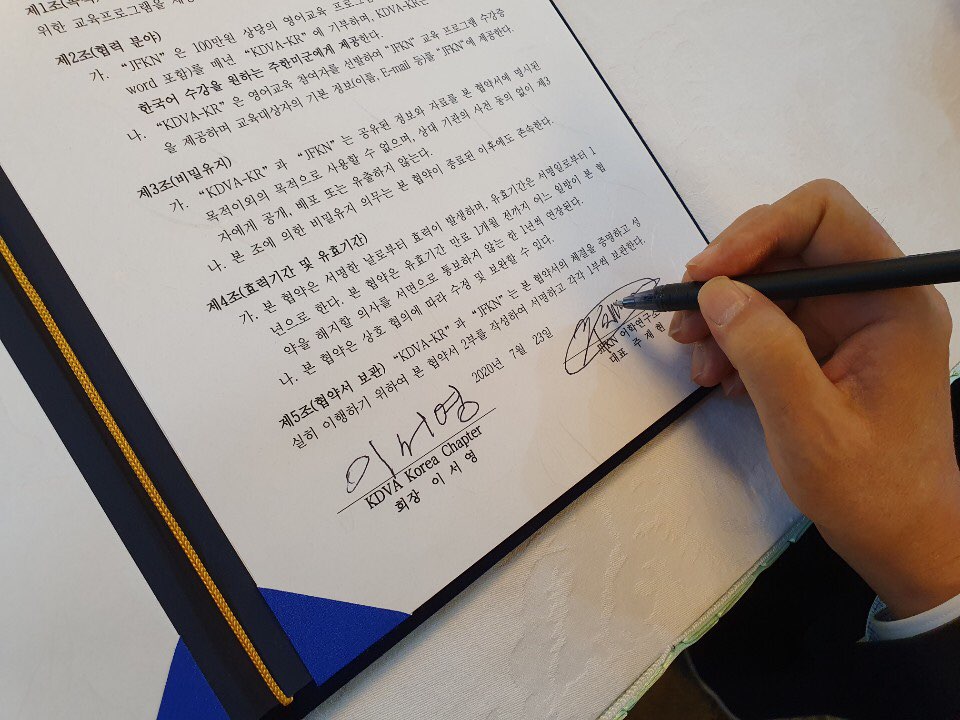 제1조
위한 교육프로그램을
제2조(협력 분야)
가. “JFKN”은 100만원 상당의 영어교육
word 포함)를 매년 “KDVA-KR”에 기부하며, KDVA-KR은
한국어 수강을 원하는 주한미군에게 제공한다.
나. “KDVA-KR”은 영어교육 참여자를 선발하여 “JFKN” 교육 프로그램 수강증
을 제공하며 교육대상자의 기본 정보(이름, E-mail 등)를 “JFKN”에 제공한다.
제3조(비밀유지)
가. “KDVA-KR”과 “JFKN”는 공유된 정보와 자료를 본 협약서에 명시된
목적이외의 목적으로 사용할 수 없으며, 상대 기관의 사전 동의 없이 제3
자에게 공개, 배포 또는 유출하지 않는다.
나. 본 조에 의한 비밀유지 의무는 본 협약이 종료된 이후에도 존속한다.
제4조(효력기간 및 유효기간)
가. 본 협약은 서명한 날로부터 효력이 발생하며, 유효기간은 서명일로부터 1
년으로 한다. 본 협약은 유효기간 만료 1개월 전까지 어느 일방이 본 협
약을 해지할 의사를 서면으로 통보하지 않는 한 1년씩 연장된다.
나. 본 협약은 상호 협의에 따라 수정 및 보완할 수 있다.
제5조(협약서 보관)
“KDVA-KR”과 “JFKN”는 본 협약서의 체결을 증명하고 성
실히 이행하기 위하여 본 협약서 2부를 작성하여 서명하고 각각 1부씩 보관한다.
2020년 7월 23일
이서영
KDVA Korea Chapter
회장 이 서 영
JFKN 어학연구소
대표 주 재 현